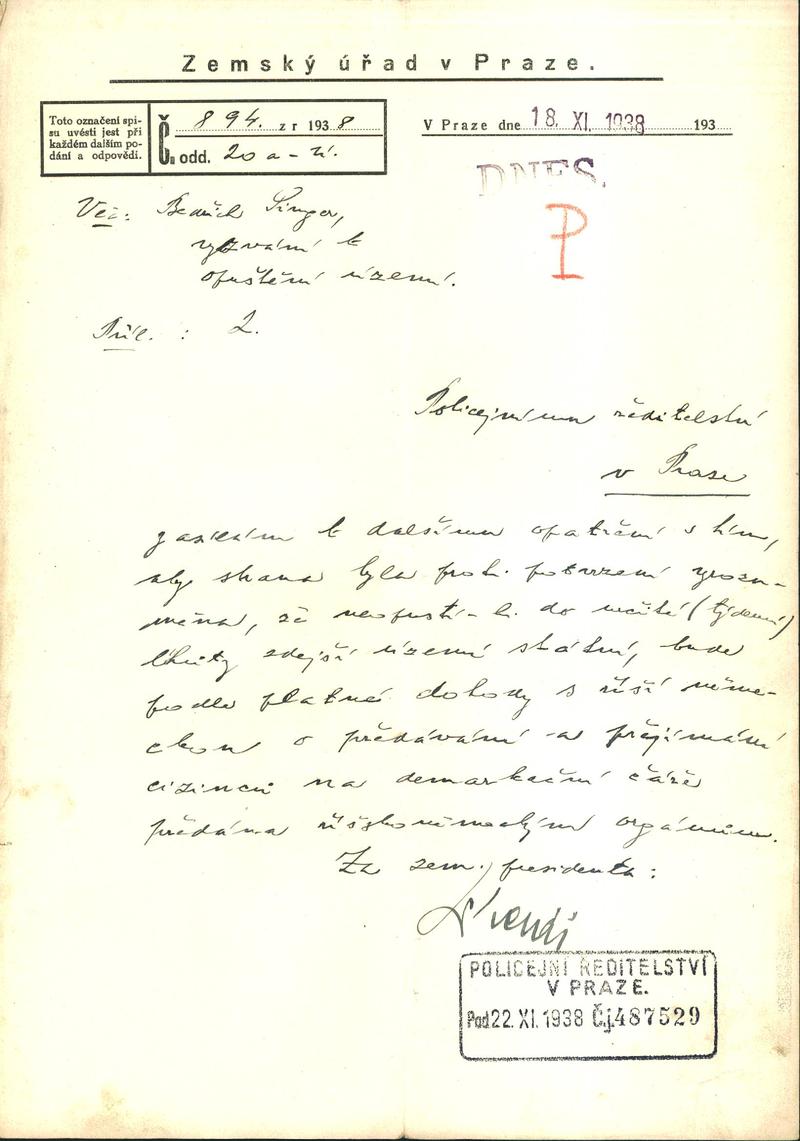 Zemský úřad v Praze.
Toto označení spi-
su uvésti jest při
každém dalším po-
dání a odpovědi.
Č. 894. z r 1938
odd. 20 a -
V Praze dne 18. XI. 1938 193
DNES.
P
Věc: Bedřich Singer,
vyzvání k
opuštění území.
Příl. : 2.
Policejnímu ředitelství
v Praze
zasílám k dalšímu opatření s tím,
aby strana byla proti potvrzení vyrozu-
měna, že neopustí-li do určité (týdenní)
lhůty zdejší území státní, bude
podle platné dohody s říší něme-
ckou o předávání a přejímání
cizinců na demarkační čáře
předána říšskoněmeckým orgánům.
Za zem. presidenta:
POLICEJNÍ ŘEDITELSTVÍ
V PRAZE.
Pod 22. XI. 1938 Čj. 487529